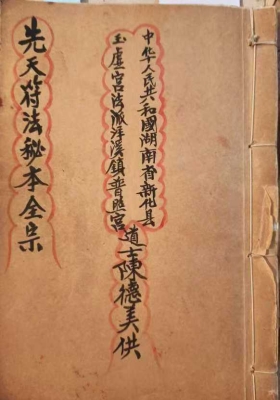 中华人民共和國湖南省新化县
玉虚宫法派洋溪鎮普照宫
道士陳德美供
先天符法秘本全宗